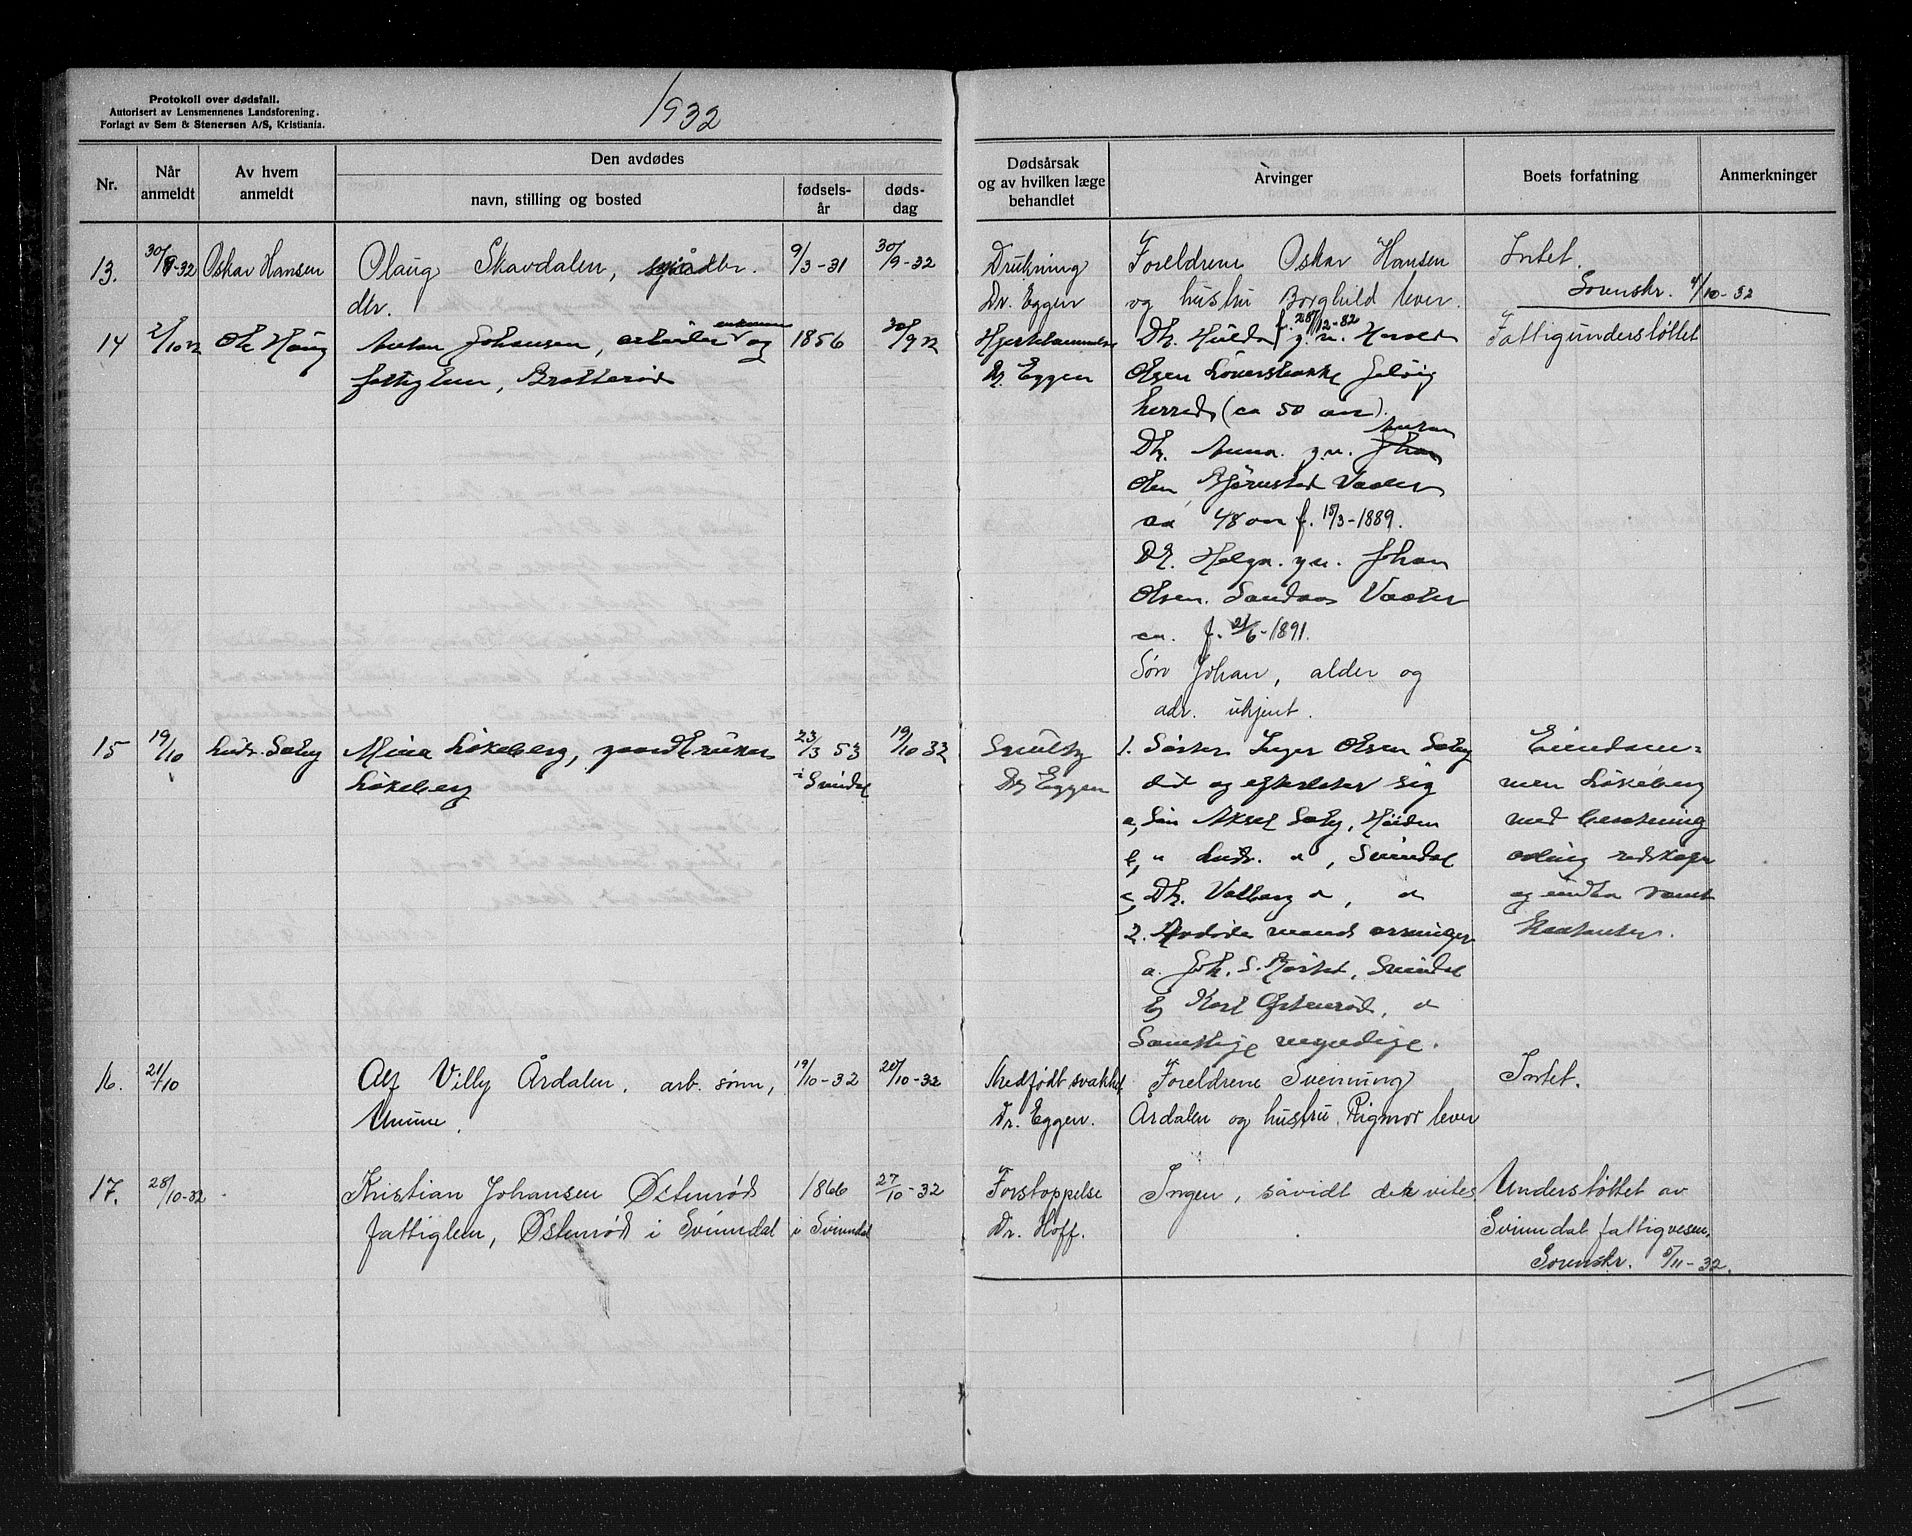 Protokoll over dødsfall.
Autorisert av Lensmennenes Landsforening.
Forlagt av Sem & Stenersen A/S, Kristiania.
1932
Nr.
Når anmeldt
Av hvem anmeldt
Den avdødes
navn, stilling og bosted
fødsels-år
døds-dag
Dødsårsak og av hvilken læge behandlet
Arvinger
Boets forfatning
Anmerkninger
13. 30/9-32 Oskar Hansen Olaug Skavdalen, 9/3-31 30/9-32
dtr.
Drukning Foreldrene Oskar Hansen Intet.
Dr. Eggen og hustru Borghild lever.
Sorenskr. /10-32
14 2/10 Haug Anton Johansen, arbeider og 1856 30/9
fattiglem, Bratterød
Dtr. Hulda f. 28/12-82 g.m. Fattigunderstøttet
Dr. Eggen Olsen
herred (ca 50 aar).
Dtr. Anna g.m. Johan Anton
Olsen Bjørnstad Vaaler
ca 48 aar f. 15/3-1889.
Dtr. Helga g.m. Johan
Olsen. Vaaler
ca. f. 21/6-1891.
Søn Johan, alder og
adr. ukjent.
15 19/10 Ludv. Løkeberg, gaardbruker 23/3 53 19/10 32
Løkeberg i Svindal
1. Søster Inger Olsen
Dr Eggen død og efterlater sig men Løkeberg
a, Søn Aksel , med besetning
b, " Ludv. " , Svindal redskaper
c, Dtr. Valborg " , "
2. Avdøde mands arvinger kontanter.
a. Joh. S. , Svindal
b, Karl Østenrød, "
Samtlige myndige.
16. 21/10 Alf Villy Årdalen, arb. sønn, 19/10-32 20/10-32
Medfødt svakhet Foreldrene Svenning Intet.
Dr. Eggen. Årdalen og hustru Rigmor lever
17. 28/10-32 Kristian Johansen Østenrød 1866 27/10-32
fattiglem, Østenrød i Svinndal i Svinndal
Forstoppelse Ingen, såvidt det vites Understøttet av
Dr. Hoff. Svinndal fattigvesen.
Sorenskr. 5/11-32.